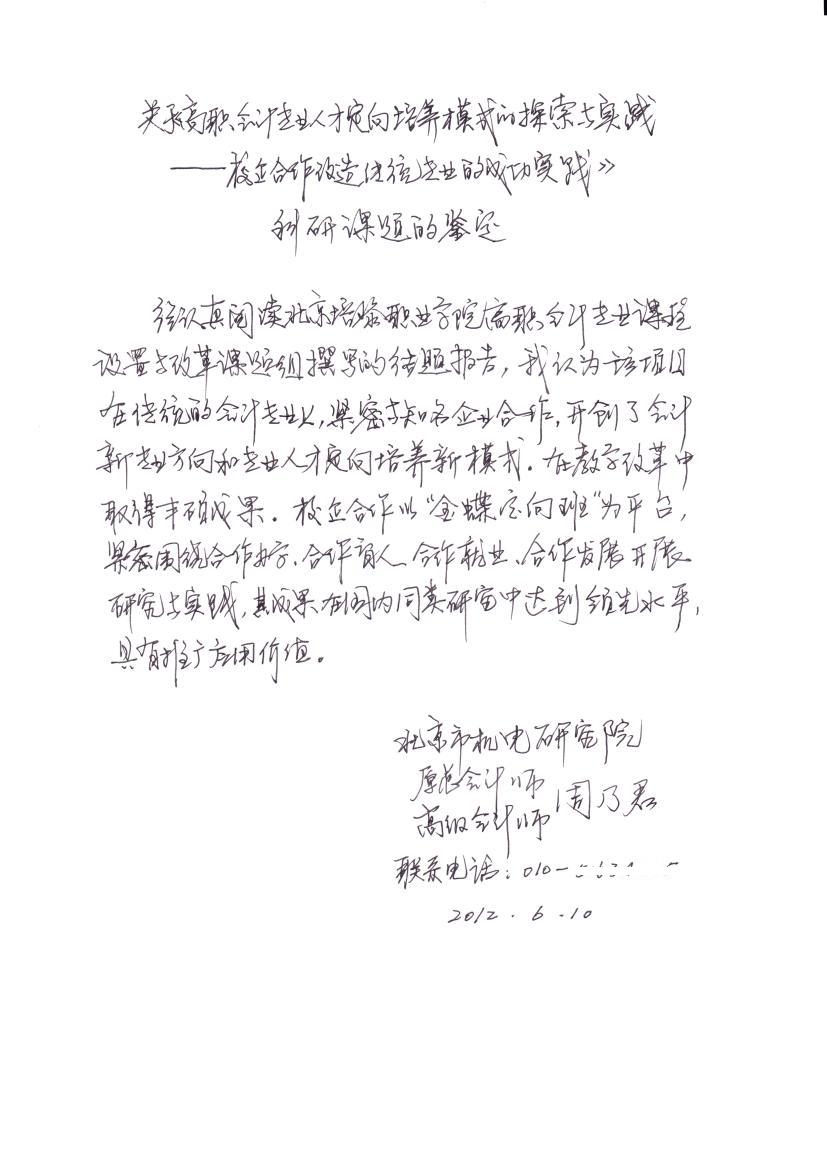 关于高职会计专业人才定向培养模式的探索与实践
——校企合作改造传统专业的成功实践》
科研课题的鉴定
经认真阅读北京培黎职业学院高职会计专业课程
设置与改革课题组撰写的结题报告，我认为该项目
在传统的会计专业上，紧密与知名企业合作，开创了会计
新专业方向和专业人才定向培养新模式。在教学改革中
取得丰硕成果。校企合作以“金蝶定向班”为平台，
紧密围绕合作办学、合作育人、合作就业、合作发展开展
研究与实践，其成果在国内同类研究中达到领先水平，
具有推广应用价值。
北京市机电研究院
原总会计师
高级会计师 周乃君
联系电话：010-
2012.6.10